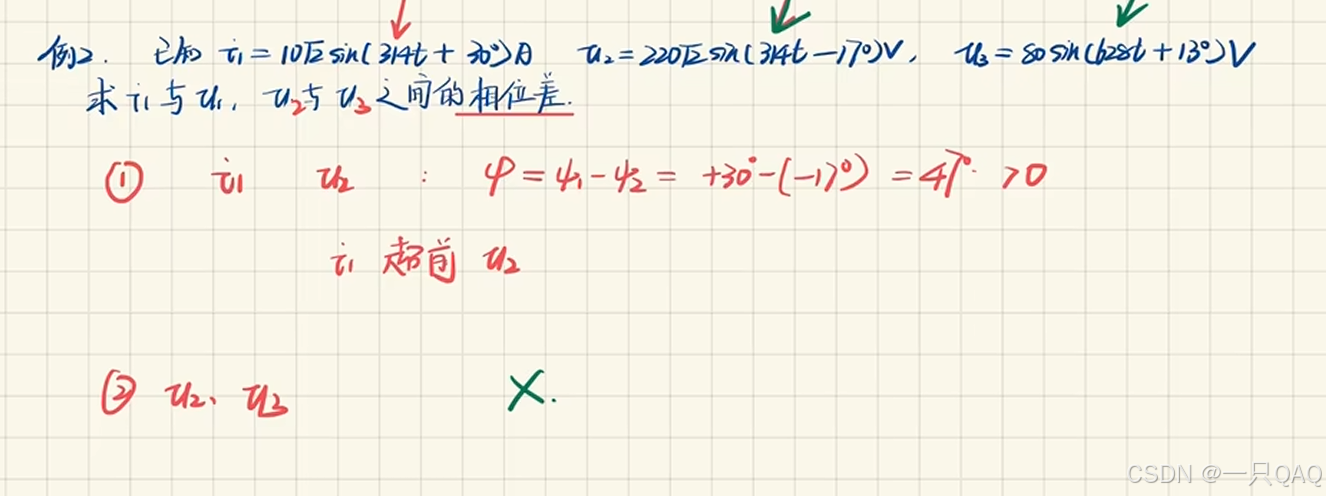 例2. 已知 i₁=10√2 sin(314t+30°)A u₂=220√2 sin(314t-17°)V, u₃=80 sin(628t+13°)V
求 i₁ 与 u₁, u₂ 与 u₃ 之间的相位差.
① i₁ u₂ : φ=ψ₁-ψ₂= +30°-(-17°) =47° >0
i₁ 超前 u₂
② u₂、u₃ ×.
CSDN @一只QAQ